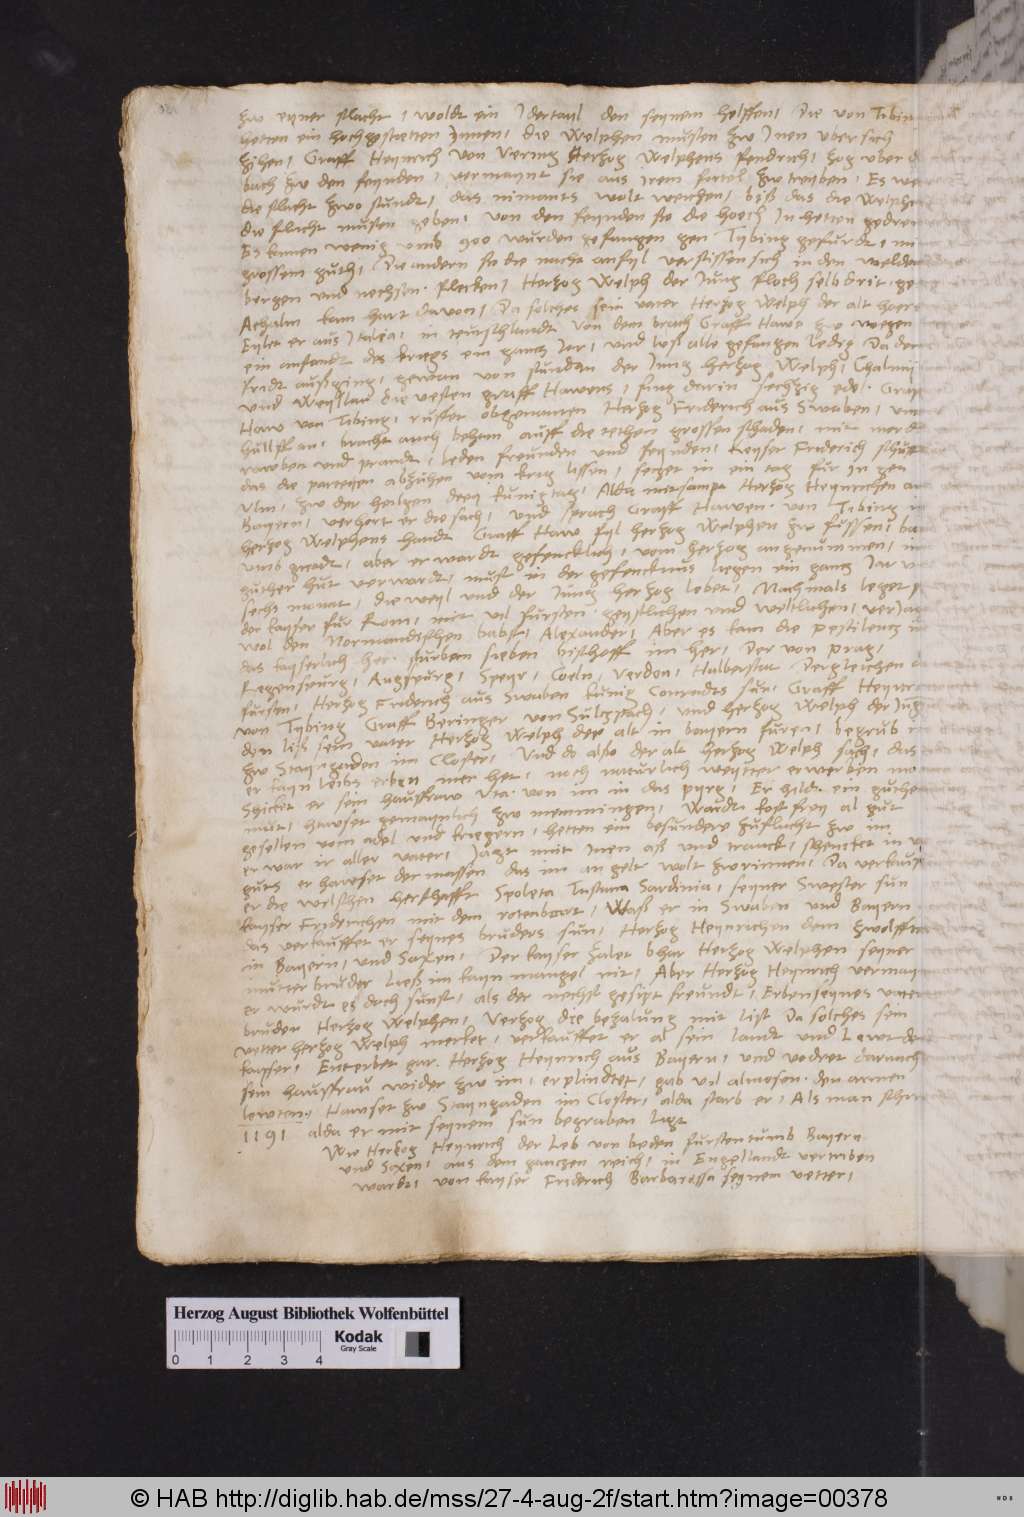 zw eyner slacht, woldt ein Idertayl den seynem helffen, Die von Tibin
hetten ein hochgestretten Innen, die Welphen musten zw Inen uber sich
zihen, Graff Heynrich von Vering Herzog Welphens fendrich, zog uber d
bach zw den feynden, vermaynt sie aus irem fortel zw treyben, Es we
die slacht zwo stundt, das nimants wolt weichen, biß das die Welph
die flucht musten geben, von den feynden so die hoech In hetten gedren
Es kamen wenig umb 900 wurden gefangen gen Tybing gefurdt, mi
grossem guth, Die andern so die nacht anfyl verstissen sich in den welde
bergen und nechsten flecken, Herzog Welph der Jung floch selb drit, ge
Achalm kam hart davon, Da solches sein vater Herzog Welph der alt hoert
Eylet er aus Italia, in teutschlandt von dem brach Graff Hawe zw wegen
ein anstandt des kriegs ein gantz Jar, und ließ alle gefangen ledig Da der
fridt außging, gewan von stunden der Jung herzog Welph, Chalmi
und Weyllar die vesten graff Hawens, fing darin sechzig edel. Graf
Haw von Tibing, ruffet obgenanten Herzog Friderich aus Swaben, um
hulff an, bracht auch behem auff die tethen grossen schaden, mit mord
rawben und prandt, beden freunden und feynden, keyser Friderich schuff
das die parteyen abzihen vom krig lissen, setzet in ein tag fur in gen
Ulm, zw der heilgen drey kunig tag, Alda mitsampt Herzog Heynrichen aus
Bayern, verhort er die sach, und sprach Graff Hawen von Tibing in
herzog Welphens handt Graff Haw fyl herzog Welphen zw fussen, ba
umb gnadt, aber er wardt gefencklich, vom herzog angenummen, in
guther hut verwardt, must in der gefencknus liegen ein gantz Jar und
sechs monat, die weyl und der Jung herzog lebet, Nachmals leget s
der kayser fur Rom, mit vil fursten geystlichen und weltlichen, verJag
wol den Normandischen babst, Alexander, Aber es kam die pestilentz in
das kayserlich her. sturben sieben bischoff im her, Der von prag,
Regenspurg, Augspurg, Speyr, Coeln, Verdon, Halberstat Dergleichen
fursten, Herzog Friderich aus Swaben kunig Conradts sun, Graff Heynr
von Tybing Graff Beringer von Sultzpach, und herzog Welph der Jug
den ließ sein vater Herzog Welph der alt in bayern furen, begrub in
zw Stayngaden im Closter, Und do also der alt herzog Welph sach, das
er kayn leibs erben mer het, noch naturlich weytter erwerben mo
Schicket er sein hausfraw Uta von im in das pyrg, Er hildt ein guthen
mut, hawset gemaynlich zw memmingen, Wardt kost frey al gut
gesellen vom adel und kriegern, hetten ein besundere zuflucht zw im
er war ir aller vater, Jagt mit Inen aß und tranck, schencket in v
guts er hawset dermassen das im an gelt wolt zwrinnen, Da verkauf
er die welschen herschafft Spoleta Tustana Sardinia, seyner Swester sun
kayser Friderichen mit dem rotenbart, Waß er in Swaben und Bayern
das verkauffet er seynes bruders sun, Herzog Heynrichen dem zwolfften
in Bayern, und Saxen, Der kayser zalet bhar Herzog Welphen seyner
mutter bruder ließ im kayn mangel nit, Aber Herzog Heynrich vermay
er wurdt es doch sunst, als der nechst gesipt freundt, Erben seynes vater
bruder Herzog Welphen, Verzog die bezalung mit list Da solches sein
vetter herzog Welph merket, verkauffet er al sein landt und Lewt de
kayser, Enterbet gar. Herzog Heynrich aus Bayern, und vodret darnach
sein hausfrau wider zw im, er plindtet, gab vil almosen den armen
lewten, Hawset zw Stayngaden im Closter, alda starb er, Als man schr
1191 alda er mit seynem sun begraben ligt
Wie Herzog Heynrich der Leb von beden furstentumb Bayern
und Saxen, aus dem gantzen reich, in Engellandt vertriben
wardt, von kayser Friderich Barbarossa seynem vetter,
Herzog August Bibliothek Wolfenbüttel
Kodak
Gray Scale
0 1 2 3 4
© HAB http://diglib.hab.de/mss/27-4-aug-2f/start.htm?image=00378